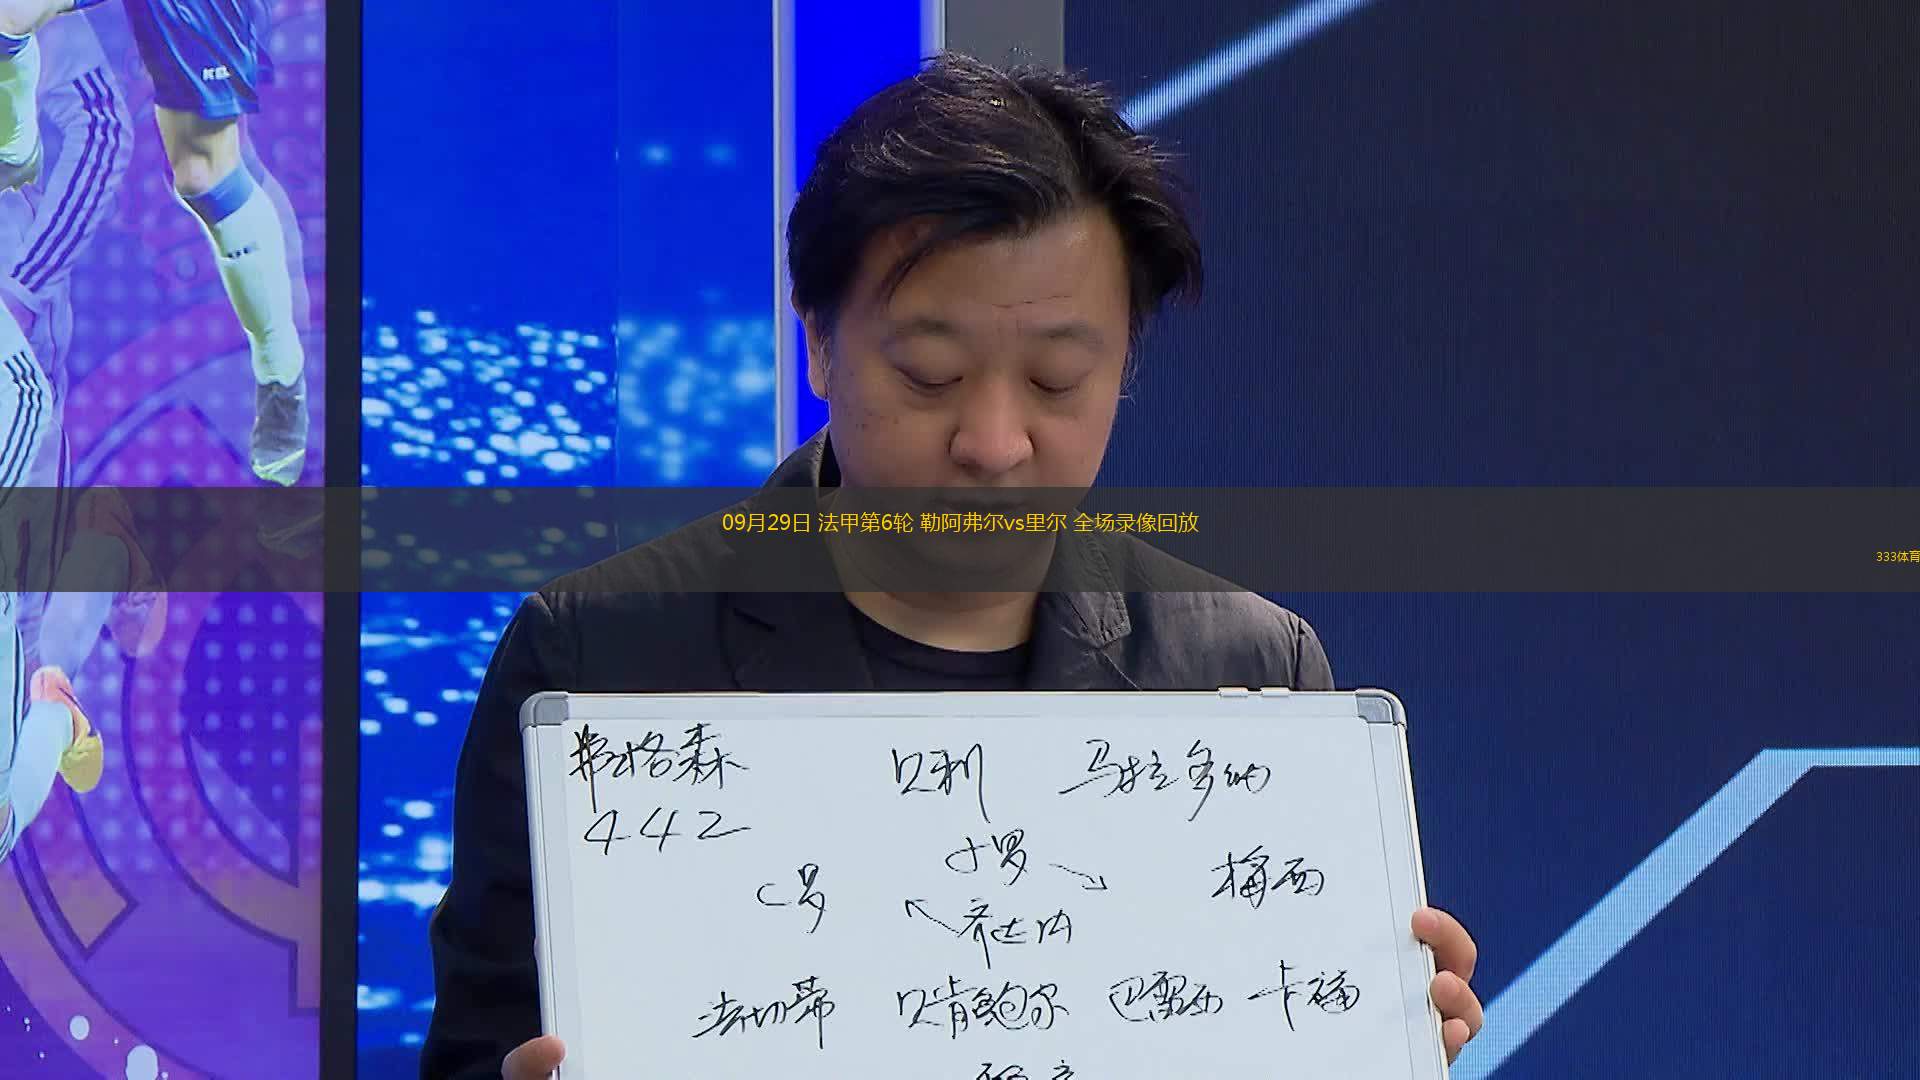 09月29日 法甲第6轮 勒阿弗尔vs里尔 全场录像回放
333体育
弗格森 贝利 马拉多纳
442
小罗
C罗 梅西
齐达内
法切蒂 贝肯鲍尔 巴雷西 卡福